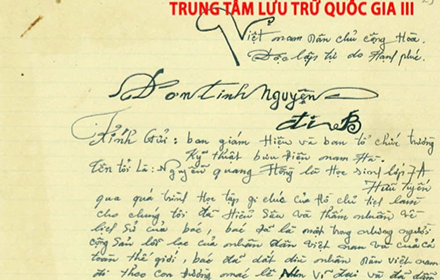 TRUNG TÂM LƯU TRỮ QUỐC GIA III
Việt nam dân chủ cộng hòa
Độc lập tự do hạnh phúc.
Đơn tình nguyện
đi B
Kính Gửi: ban giám Hiệu và ban tổ chức trường
Kỹ thuật bưu điện nam Hà.
tên tôi là: Nguyễn quang Hồng là Học sinh lớp 7A
Hữu tuyến
qua quá trình Học tập di chúc của Hồ chủ tịch
cho chúng tôi đã Hiểu sâu và thấm nhuần về
lịch sử của bác, bác đã là một trong những người
cộng sản lỗi lạc của nhân dân việt nam và của cả
toàn thế giới, bác đã dắt dìu nhân dân việt nam
đi theo con đường mác lê Nin vĩ đại và đã dẫn